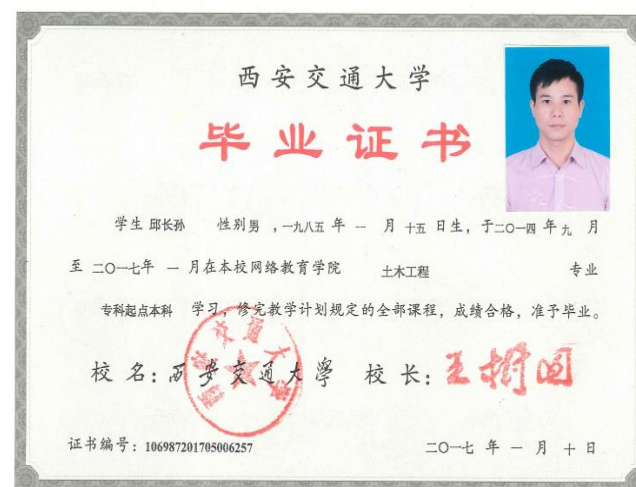 西安交通大学
毕业证书
学生 邱长孙 性别 男 ，一九八五 年 一 月 十五 日生，于二〇一四 年 九 月
至 二〇一七年 一 月在本校网络教育学院 土木工程 专业
专科起点本科 学习，修完教学计划规定的全部课程，成绩合格，准予毕业。
校 名：西安交通大学 校 长：王树国
西安交通大学
证书编号：106987201705006257 二〇一七 年 一 月 十 日